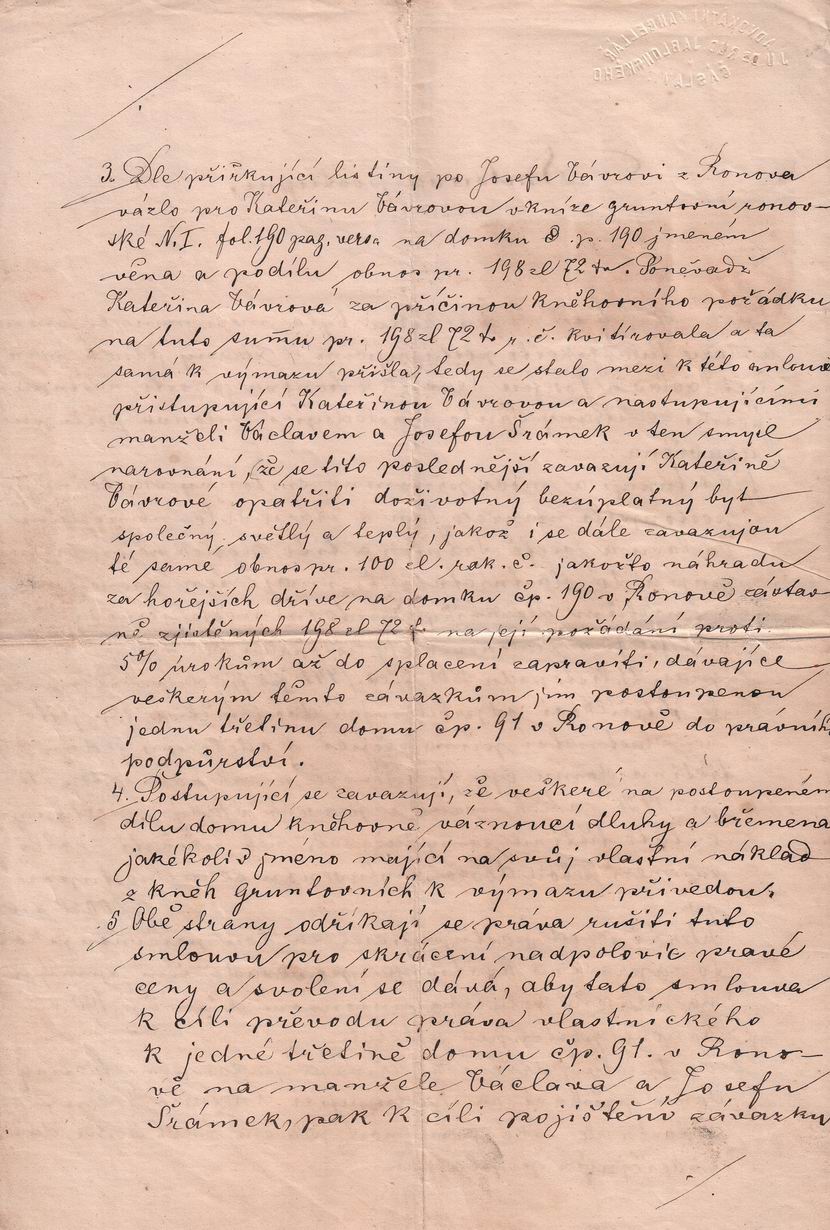 ADVOKÁTNÍ KANCELÁŘ
JUDra
ČÁSLAV
3. Dle přiřkující listiny po Josefu Vávrovi z Ronova
vázlo pro Kateřinu Vávrovou v knize gruntovní ronov-
ské N. I. fol. 190 pag. versa na domku č. p. 190 jmeném
věna a podílu obnos pr. 198 zl 72 kr. Poněvadž
Kateřina Vávrová za příčinou kněhovního pořádku
na tuto sumu pr. 198 zl 72 kr r. č. kvitirovala a ta
samá k výmazu přišla, tedy se stalo mezi k této smlouvě
přistupující Kateřinou Vávrovou a nastupujícími
manželi Václavem a Josefou Šrámek v ten smysl
narovnání, že se tito poslednější zavazují Kateřině
Vávrové opatřiti doživotný bezúplatný byt
společný, světlý a teplý, jakož i se dále zavazujou
té samé obnos pr. 100 zl. rak. č. jakožto náhradu
za hořejších dříve na domku čp. 190 v Ronově zástav-
ně zjištěných 198 zl 72 k na její požádání proti
5% úrokům až do splacení zapraviti, dávajíce
veškerým těmto závazkům jim postoupenou
jednu třetinu domu čp. 91 v Ronově do právních
podpůrství.
4. Postupující se zavazují, že veškeré na postoupeném
dílu domu kněhovně váznoucí dluhy a břemena
jakékoliv jméno mající na svůj vlastní náklad
z kněh gruntovních k výmazu přivedou.
5 Obě strany odříkají se práva rušiti tuto
smlouvu pro skrácení nadpolovic pravé
ceny a svolení se dává, aby tato smlouva
k cíli převodu práva vlastnického
k jedné třetině domu čp. 91. v Rono-
vě na manžele Václava a Josefu
Šrámek, pak k cíli pojištění závazku